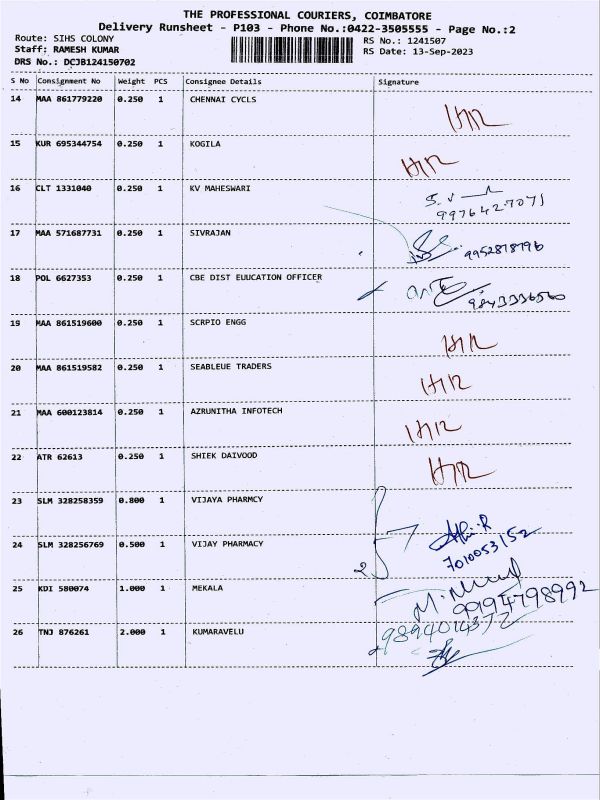 THE PROFESSIONAL COURIERS, COIMBATORE
Delivery Runsheet - P103 - Phone No.:0422-3505555 - Page No.:2
Route: SIHS COLONY RS No.: 1241507
Staff: RAMESH KUMAR RS Date: 13-Sep-2023
DRS No.: DCJB124150702
S No Consignment No Weight PCS Consignee Details Signature
14 MAA 861779220 0.250 1 CHENNAI CYCLS
15 KUR 695344754 0.250 1 KOGILA
16 CLT 1331040 0.250 1 KV MAHESWARI
9976427071
17 MAA 571687731 0.250 1 SIVRAJAN 9952878796
18 POL 6627353 0.250 1 CBE DIST EUUCATION OFFICER
9843336560
19 MAA 861519600 0.250 1 SCRPIO ENGG
20 MAA 861519582 0.250 1 SEABLEUE TRADERS
21 MAA 600123814 0.250 1 AZRUNITHA INFOTECH
22 ATR 62613 0.250 1 SHIEK DAIVOOD
23 SLM 328258359 0.800 1 VIJAYA PHARMCY
24 SLM 328256769 0.500 1 VIJAY PHARMACY
7010053152
25 KDI 580074 1.000 1 MEKALA
9994798992
26 TNJ 876261 2.000 1 KUMARAVELU 9894014372